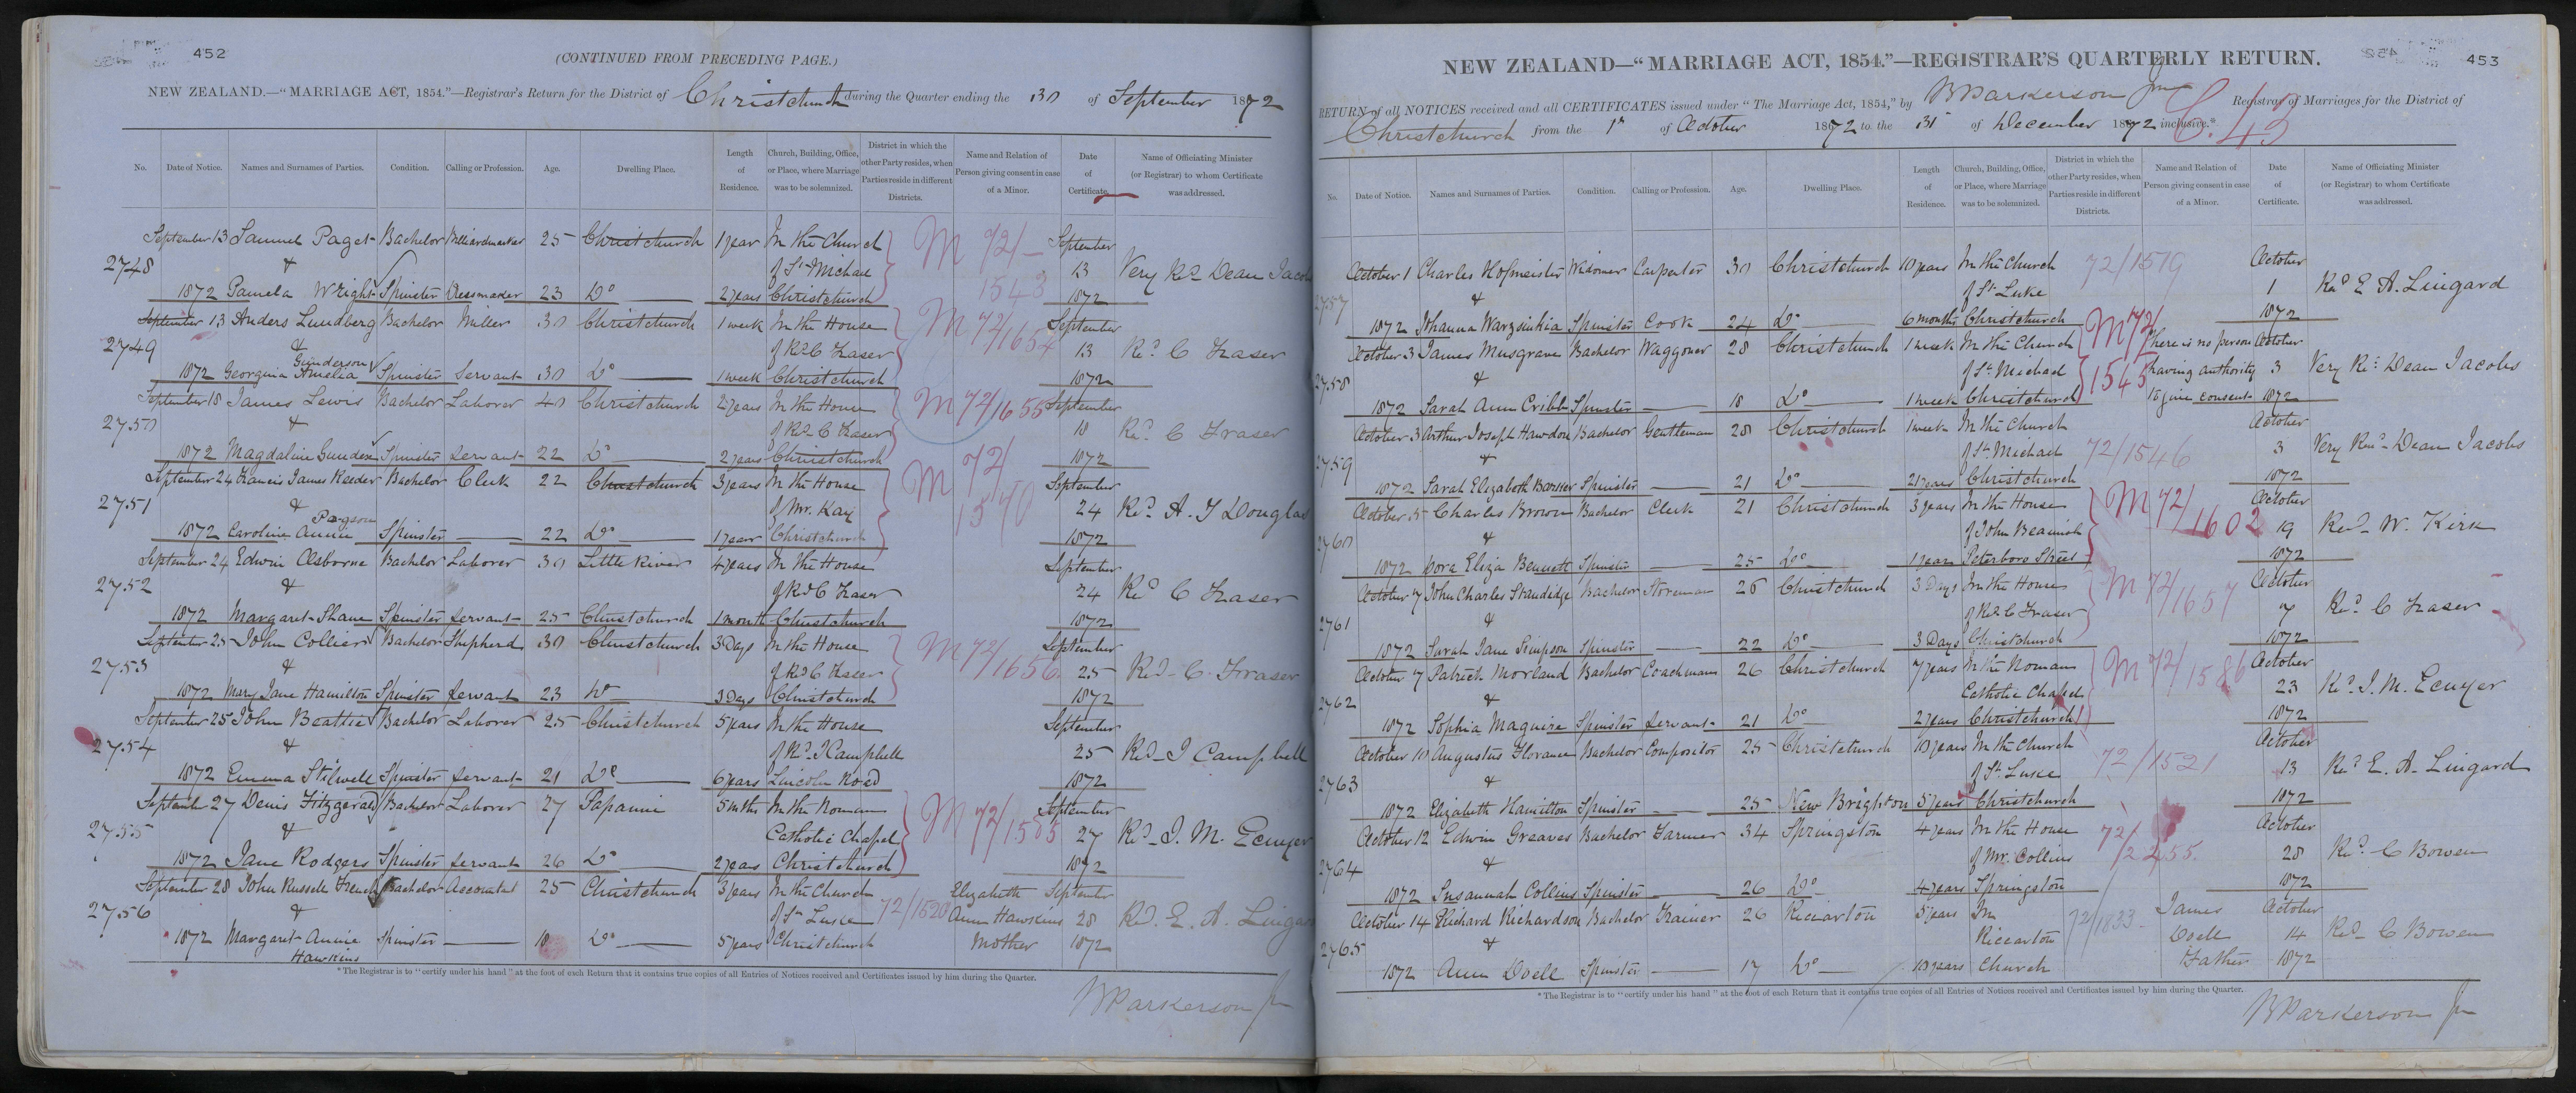 452
(CONTINUED FROM PRECEDING PAGE.)
NEW ZEALAND.—"MARRIAGE ACT, 1854."—Registrar's Return for the District of Christchurch during the Quarter ending the 30 of September 1872
No. Date of Notice. Names and Surnames of Parties. Condition. Calling or Profession. Age. Dwelling Place. Length of Residence. Church, Building, Office, or Place, where Marriage was to be solemnized. District in which the other Party resides, when Parties reside in different Districts. Name and Relation of Person giving consent in case of a Minor. Date of Certificate. Name of Officiating Minister (or Registrar) to whom Certificate was addressed.
September 13 Samuel Paget Bachelor 25 Christchurch 1 year In the Church M 72/ September
2748 & of St Michael 1543 13 Very Revd Dean Jacobs
1872 Pamela Wright Spinster Dressmaker 23 Do 2 years Christchurch 1872
September 13 Anders Lundberg Bachelor Miller 30 Christchurch 1 week In the House M 72/1654 September
2749 & of Revd C Fraser 13 Revd C Fraser
Gunderson
1872 Georgina Amelia Spinster Servant 30 Do 1 week Christchurch 1872
September 18 James Lewis Bachelor Laborer 40 Christchurch 2 years In the House M 72/1655 September
2750 & of Revd C Fraser 18 Revd C Fraser
1872 Magdaline Spinster Servant 22 Do 2 years Christchurch 1872
September 24 Francis James Reeder Bachelor Clerk 22 Christchurch 3 years In the House M 72/ September
2751 & of Mr. Kay 1540 24 Revd A. Douglas
Pogson
1872 Caroline Annie Spinster 22 Do 1 year Christchurch 1872
September 24 Edwin Osborne Bachelor Laborer 30 Little River 4 years In the House September
2752 & of Revd C Fraser 24 Revd C Fraser
1872 Margaret Shane Spinster Servant 25 Christchurch 1 month Christchurch 1872
September 25 John Collier Bachelor Shepherd 30 Christchurch 3 Days In the House M 72/1656 September
2753 & of Revd C Fraser 25 Revd C. Fraser
1872 Mary Jane Hamilton Spinster Servant 23 Do 3 Days Christchurch 1872
September 25 John Beattie Bachelor Laborer 25 Christchurch 5 years In the House September
2754 & of Revd J Campbell 25 Revd J Campbell
1872 Emma Stilwell Spinster Servant 21 Do 6 years Lincoln Road 1872
September 27 Denis Fitzgerald Bachelor Laborer 27 Papanui 5 mths In the Roman M 72/1585 September
2755 & Catholic Chapel 27 Revd J. M. Ecuyer
1872 Jane Rodgers Spinster Servant 26 Do 2 years Christchurch 1872
September 28 John Russell French Bachelor Accountant 25 Christchurch 3 years In the Church Elizabeth September
2756 & of St Luke 72/1520 Ann Hawkins 28 Revd. E. A. Lingard
1872 Margaret Annie Spinster 18 Do 5 years Christchurch Mother 1872
Hawkins
* The Registrar is to "certify under his hand" at the foot of each Return that it contains true copies of all Entries of Notices received and Certificates issued by him during the Quarter.
B Parkerson Jn
453
NEW ZEALAND—"MARRIAGE ACT, 1854."—REGISTRAR'S QUARTERLY RETURN.
RETURN of all NOTICES received and all CERTIFICATES issued under "The Marriage Act, 1854," by B Parkerson Jnr Registrar of Marriages for the District of
Christchurch from the 1st of October 1872 to the 31st of December 1872 inclusive.*
No. Date of Notice. Names and Surnames of Parties. Condition. Calling or Profession. Age. Dwelling Place. Length of Residence. Church, Building, Office, or Place, where Marriage was to be solemnized. District in which the other Party resides, when Parties reside in different Districts. Name and Relation of Person giving consent in case of a Minor. Date of Certificate. Name of Officiating Minister (or Registrar) to whom Certificate was addressed.
October 1 Charles Hofmeister Widower Carpenter 30 Christchurch 10 years In the Church 72/1519 October
2757 & of St Luke 1 Revd E A. Lingard
1872 Johanna Warzinkia Spinster Cook 24 Do 6 months Christchurch 1872
October 3 James Musgrave Bachelor Waggoner 28 Christchurch 1 week In the Church M 72/ There is no person October
2758 & of St Michael 1545 having authority 3 Very Revd Dean Jacobs
1872 Sarah Ann Cribb Spinster 18 Do 1 week Christchurch to give consent 1872
October 3 Arthur Joseph Hawdon Bachelor Gentleman 28 Christchurch 1 week In the Church October
2759 & of St Michael 72/1546 3 Very Revd Dean Jacobs
1872 Sarah Elizabeth Spinster 21 Do 21 years Christchurch 1872
October 5 Charles Brown Bachelor Clerk 21 Christchurch 3 years In the House M 72/1602 October
2760 & of John Beamish 19 Revd W. Kirk
1872 Dora Eliza Bennett Spinster 25 Do 1 years Peterboro Street 1872
October 7 John Charles Standidge Bachelor Storeman 26 Christchurch 3 Days In the House M 72/1657 October
2761 & of Revd C Fraser 7 Revd C Fraser
1872 Sarah Jane Simpson Spinster 22 Do 3 Days Christchurch 1872
October 7 Patrick Morland Bachelor Coachman 26 Christchurch 7 years In the Roman M 72/1586 October
2762 & Catholic Chapel 23 Revd J. M. Ecuyer
1872 Sophia Maguire Spinster Servant 21 Do 2 years Christchurch 1872
October 10 Augustus Florance Bachelor Compositor 25 Christchurch 10 years In the Church October
2763 & of St. Luke 72/1521 13 Revd E. A. Lingard
1872 Elizabeth Hamilton Spinster 25 New Brighton 5 years Christchurch 1872
October 12 Edwin Greaves Bachelor Farmer 34 Springston 4 years In the House 72/ October
2764 & of Mr. Collins 2255 28 Revd C Bowen
1872 Susannah Collins Spinster 26 Do 4 years Springston 1872
October 14 Richard Richardson Bachelor Trainer 26 Riccarton 5 years In James October
2765 & Riccarton 72/1833 Doell 14 Revd C Bowen
1872 Ann Doell Spinster 17 Do 10 years Church Father 1872
* The Registrar is to "certify under his hand" at the foot of each Return that it contains true copies of all Entries of Notices received and Certificates issued by him during the Quarter.
B Parkerson Jn